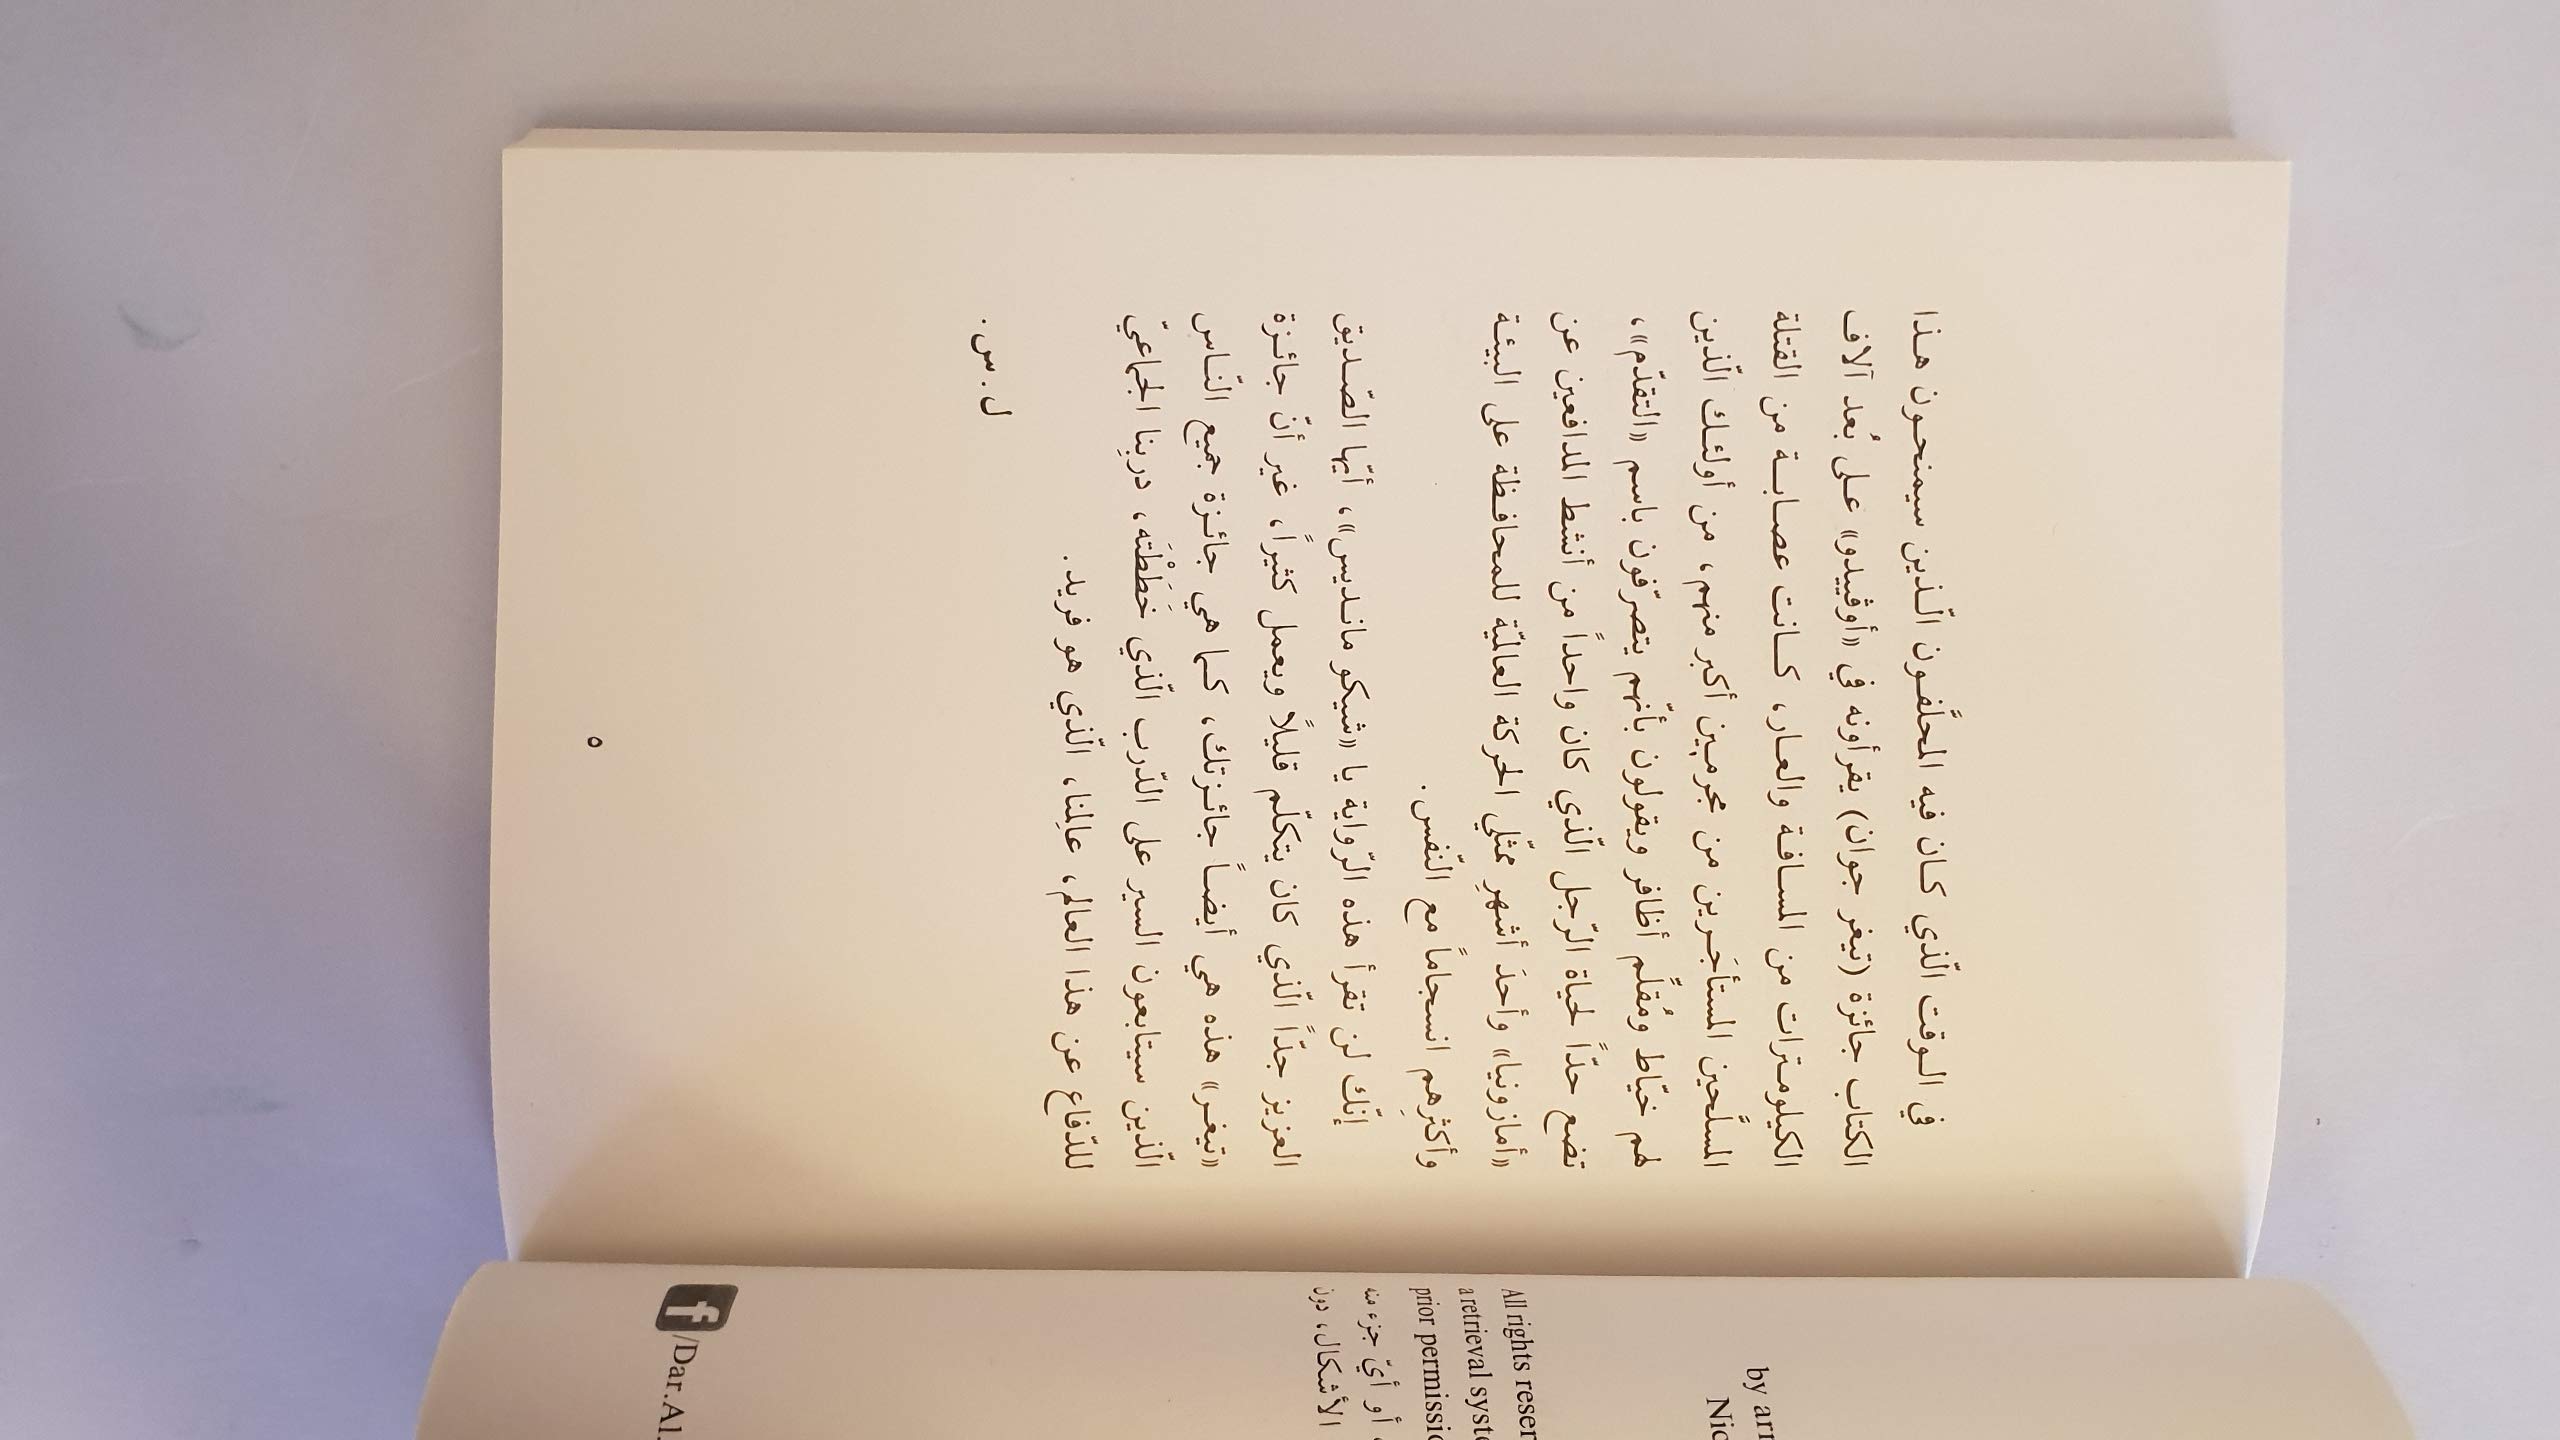 في الـوقت الّذي كـان فيه المحلَّفـون الّـذين سيمنحـون هـذا
الكتاب جائزة (تيغر جوان) يقرأونه في «أوڤييدو» علـى بُعد آلاف
الكيلومـترات من المسـافة والعـار، كـانت عصـابـة من القتلة
المسلَّحين المستأجَـرين من مجرمـين أكبر منهم، من أولئـك الّذين
لهم خيّاط ومُقلِّم أظافر ويقولون بأنّهم يتصرّفون باسم «التقدّم»،
تضع حدّاً لحياة الرّجل الّذي كان واحداً من أنشط المدافعين عن
«أمازونيا» وأحدَ أشهرِ ممثّلي الحركة العالميّة للمحافـظة على البيئـة
وأكثرِهِم انسجاماً مع النّفس.
إنّك لن تقرأ هذه الرّواية يا «شيكو مانـديس»، أيّها الصّـديق
العزيز جدّاً الّذي كان يتكلّم قليلاً ويعمل كثيراً، غير أنّ جائـزة
«تيغـر» هذه هي أيضـاً جائـزتك، كـما هي جائـزة جميع النّـاس
الّذين سيتابعون السير على الدّرب الّذي خَطَطْتَه، دربِنا الجماعيّ
للدّفاع عن هذا العالم، عالمِنا، الّذي هو فريد.
ل. س.
٥
by arr
Nic
All rights reser
a retrieval syst
prior permissi
أو أيّ جزء منه
الأشكال، دون
/Dar.Al.